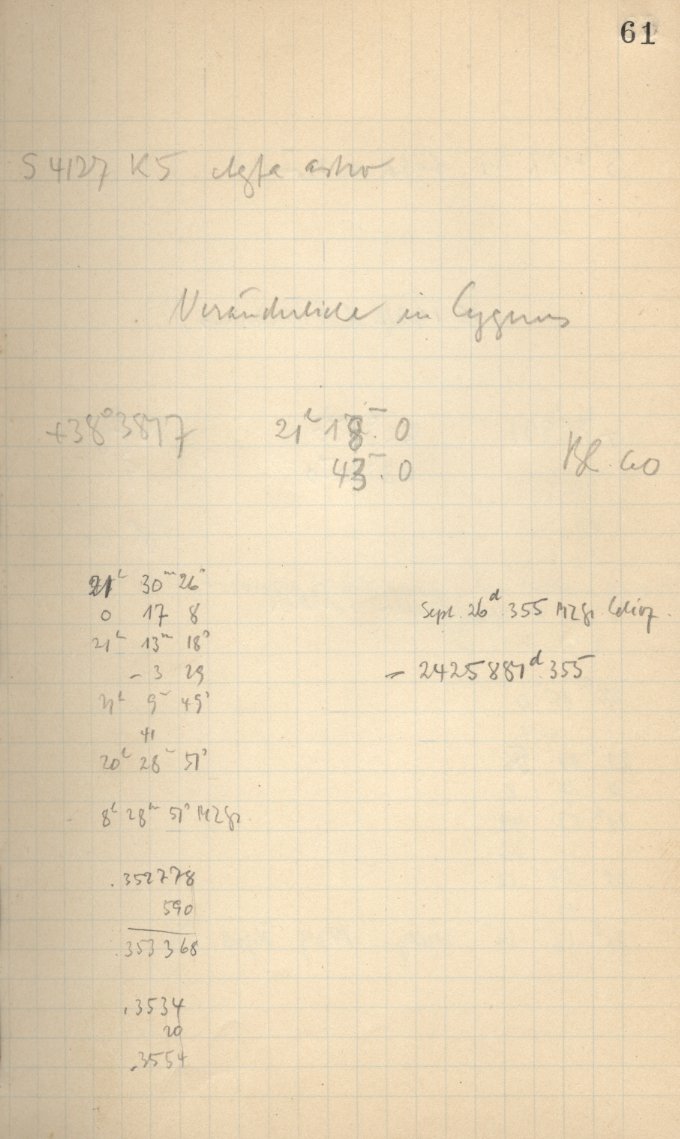 61
S 4127 K5 Agfa astro
Veränderliche in Cygnus
+38° 3817 21ʰ 18ᵐ.0 Bl. 60
43ᵐ.0
21ʰ 30ᵐ 26ˢ
0 17 8
21ʰ 13ᵐ 18ˢ
– 3 29
21ʰ 9ᵐ 49ˢ
41
20ʰ 28ᵐ 51ˢ
8ʰ 28ᵐ 51ˢ MZGr
.352778
590
.353368
.3534
20
.3554
Sept. 26ᵈ.355 MZGr
= 2425881ᵈ.355